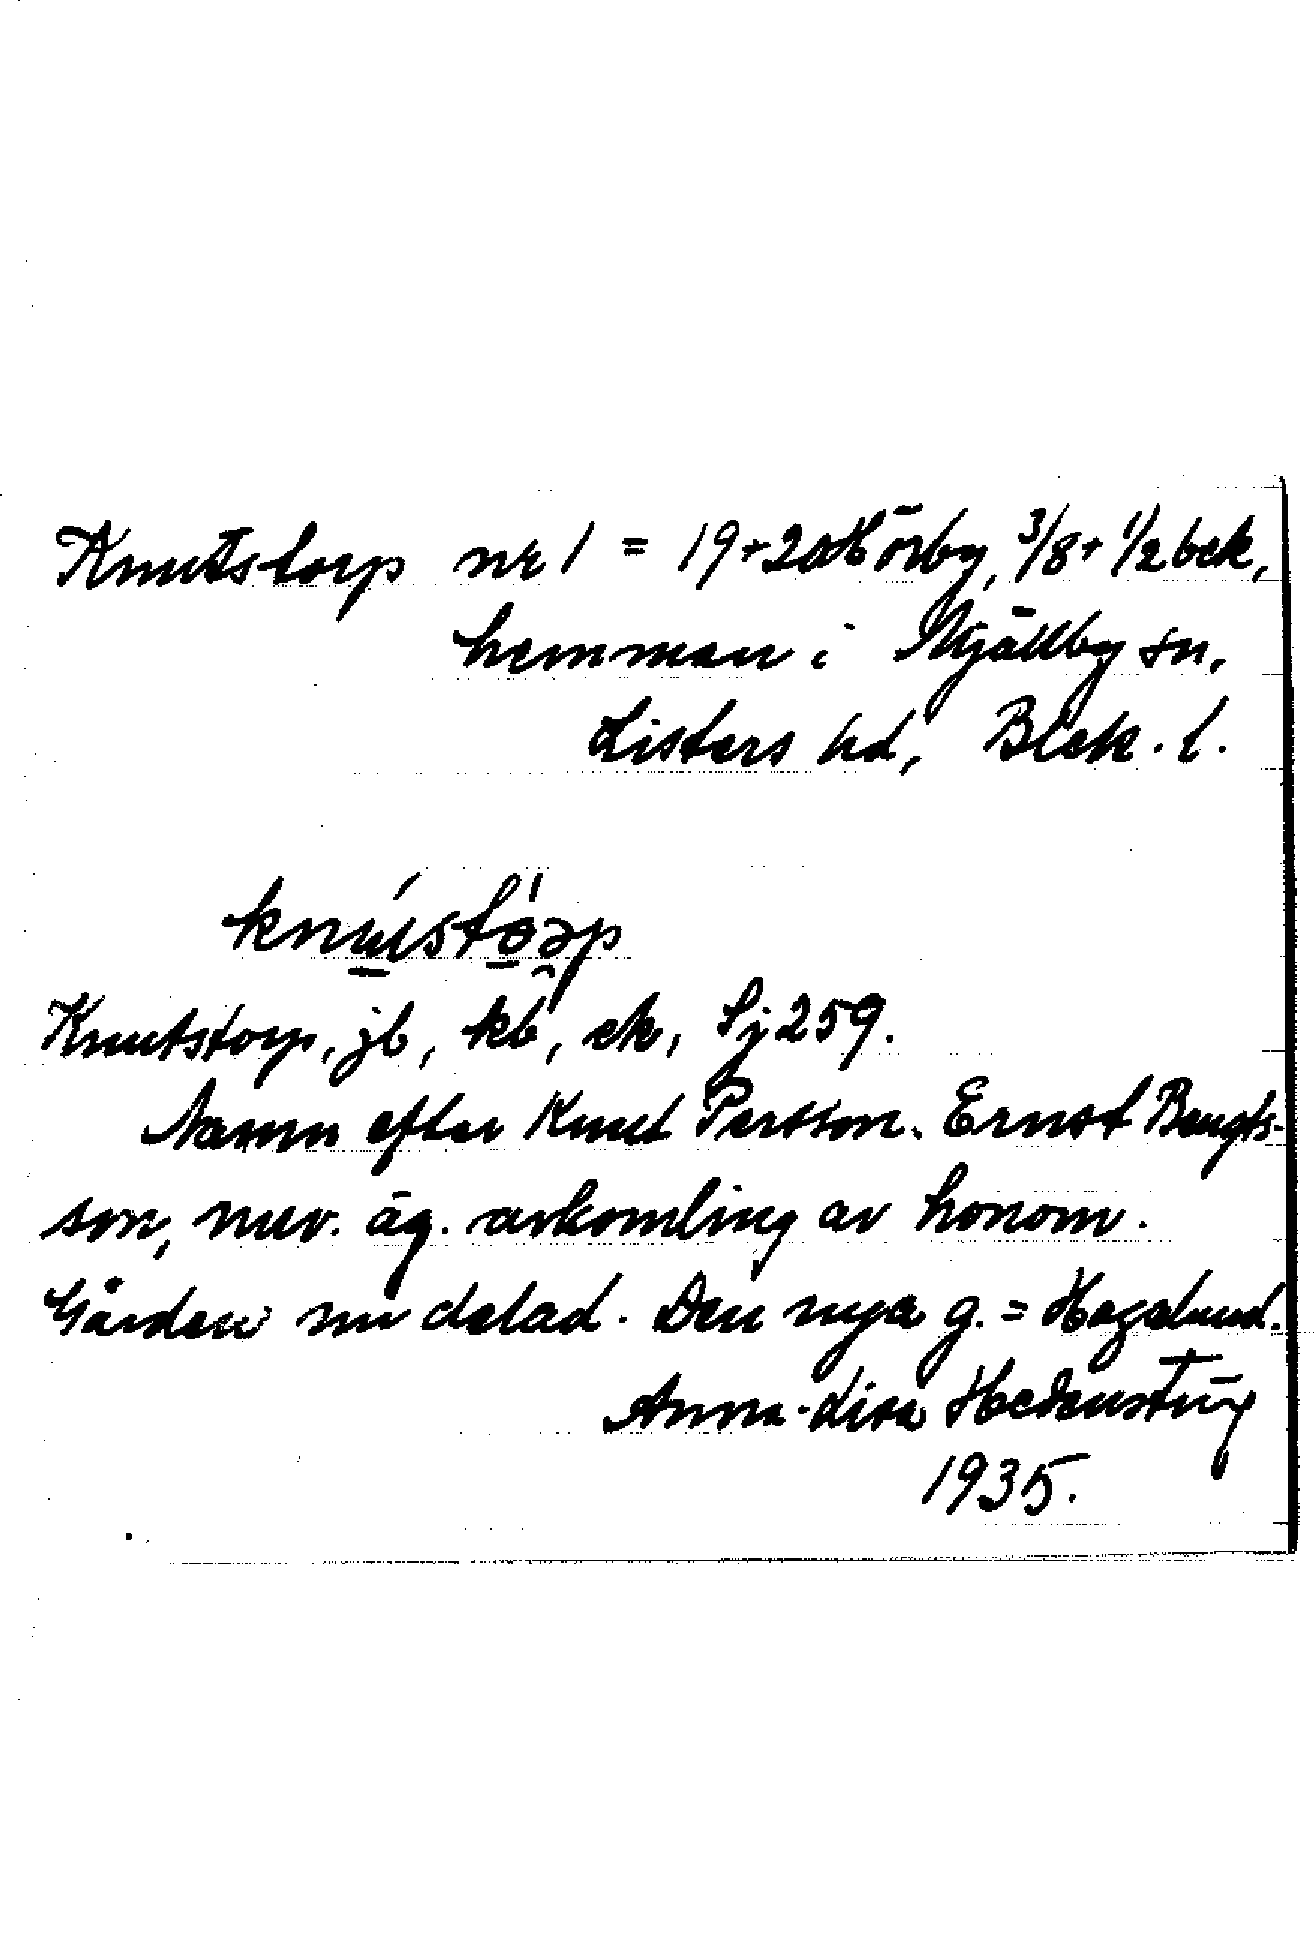 Knutstorp nr 1 = 19+20 Hörby, 3/8+1/2 bek,
hemman i Mjällby sn,
Listers hd, Blek. l.
Knutstorp, jb, kb, ek, Sj 259.
Namn efter Knut Persson. Ernst Bengts-
son, nuv. äg. avkomling av honom.
Gården nu delad. Den nya g. = Hagalund.
Anna-Lisa Hedenstig
1935.